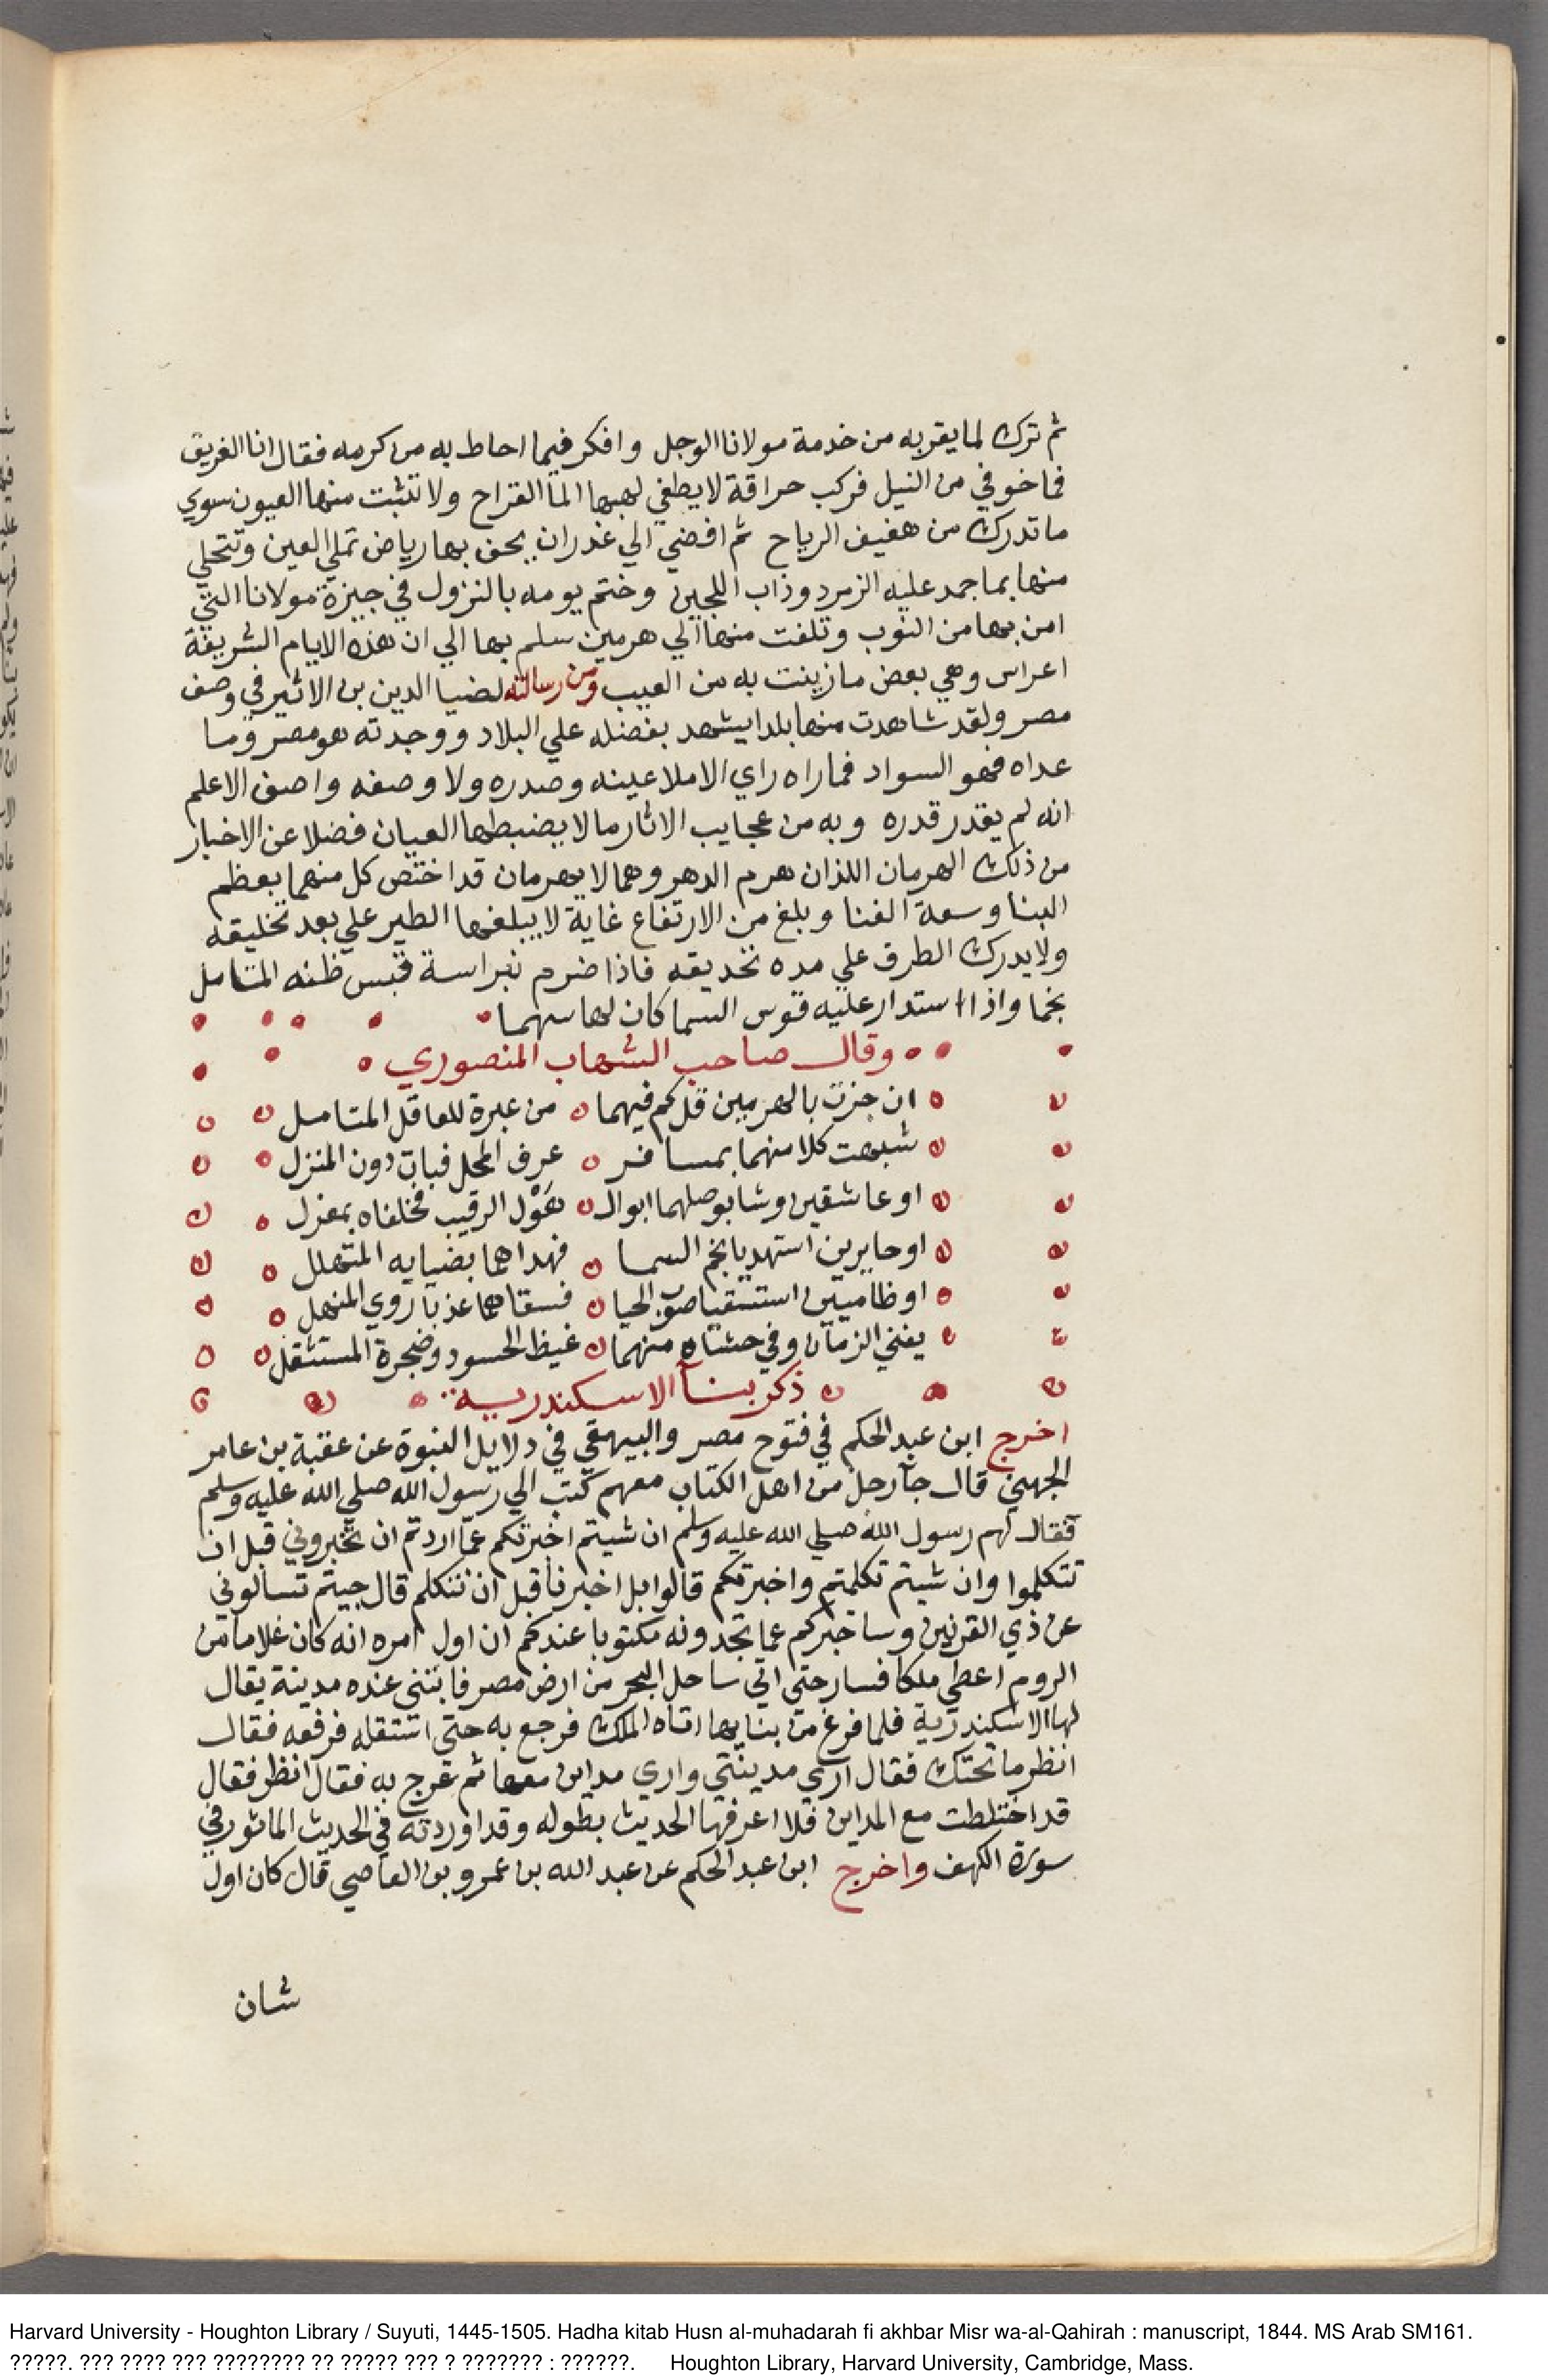 ثم ترك لما يقربه من خدمة مولانا الوجل وافكر فيما احاط به من كرمه فقال انا الغريق
فما خوفي من النيل فركب حراقة لا يطفي لهبها الما القراح ولا تثبت منها العيون سوي
ما تدرك من هفيف الرياح ثم افضي الي غدران يحف بها رياض تملي العين وتتحلي
منها بما جمد عليه الزمرد وذاب اللجين وختم يومه بالنزول في جيزة مولانا التي
امن بها من النوب وتلفت منها الي هرمين سلم بها الي ان هذه الايام الشريفة
اعراس وهي بعض ما زينت به من العبب ومن رسالته لضيا الدين بن الاثير في وصف
مصر ولقد شاهدت منها بلدا يشهد بفضله علي البلاد ووجدته هو مصر وما
عداه فهو السواد فما راه راي الا ملا عينه وصدره ولا وصفه واصف الا علم
انه لم يقدر قدره وبه من عجايب الاثار ما لا يضبطها العيان فضلا عن الاخبار
من ذلك الهرمان اللذان هرم الدهر وهما لا يهرمان قد اختص كل منهما بعظم
البنا وسعة الفنا وبلغ من الارتفاع غاية لا يبلغها الطير علي بعد تحليقه
ولا يدرك الطرف علي مده تحديقه فاذا ضرم براسة قبس ظنه المتامل
نجما واذا استدار عليه قوس السما كان لها سهما
وقال صاحب الشهاب المنصوري
ان جزت بالهرمين قل كم فيهما من عبرة للعاقل المتامل
شبهت كلا منهما بمسافر عرف المحل فبات دون المنزل
او عاشقين وشا بوصلهما ابوالـ هَوْل الرقيب فخلفاه بمعزل
او حايرين استهديا نجم السما فهداهما بضيايه المتهلل
او ظاميين استسقيا صوب الحيا فسقاهما عذبا روي المنهل
يفني الزمان وفي حشاه منهما غيظ الحسود وضجرة المستثقل
ذكر بنآ الاسكندرية
اخرج ابن عبد الحكم في فتوح مصر والبيهقي في دلايل النبوة عن عقبة بن عامر
الجهني قال جآ رجل من اهل الكتاب معهم كتب الي رسول الله صلي الله عليه وسلم
فقال لهم رسول الله صلي الله عليه وسلم ان شيتم اخبرتكم عما اردتم ان تخبروني قبل ان
تتكلموا وان شيتم تكلمتم واخبرتكم قالوا بل اخبرنا قبل ان نتكلم قال جيتم تسالوني
عن ذي القرنين وساخبركم عما تجدونه مكتوبا عندكم ان اول امره انه كان غلاما من
الروم اعطي ملكا فسار حتي اتي ساحل البحر من ارض مصر فابتني عنده مدينة يقال
لها الاسكندرية فلما فرغ من بنايها اتاه الملك فرجع به حتي استقله فرفعه فقال
انظر ما تحتك فقال اري مدينتي واري مداين معها ثم عرج به فقال انظر فقال
قد اختلطت مع المداين فلا اعرفها الحديث بطوله وقد اوردته في الحديث الماثور في
سورة الكهف واخرج ابن عبد الحكم عن عبد الله بن عمرو بن العاصي قال كان اول
شان
Harvard University - Houghton Library / Suyuti, 1445-1505. Hadha kitab Husn al-muhadarah fi akhbar Misr wa-al-Qahirah : manuscript, 1844. MS Arab SM161.
?????. ??? ???? ??? ???????? ?? ????? ??? ? ??????? : ??????. Houghton Library, Harvard University, Cambridge, Mass.